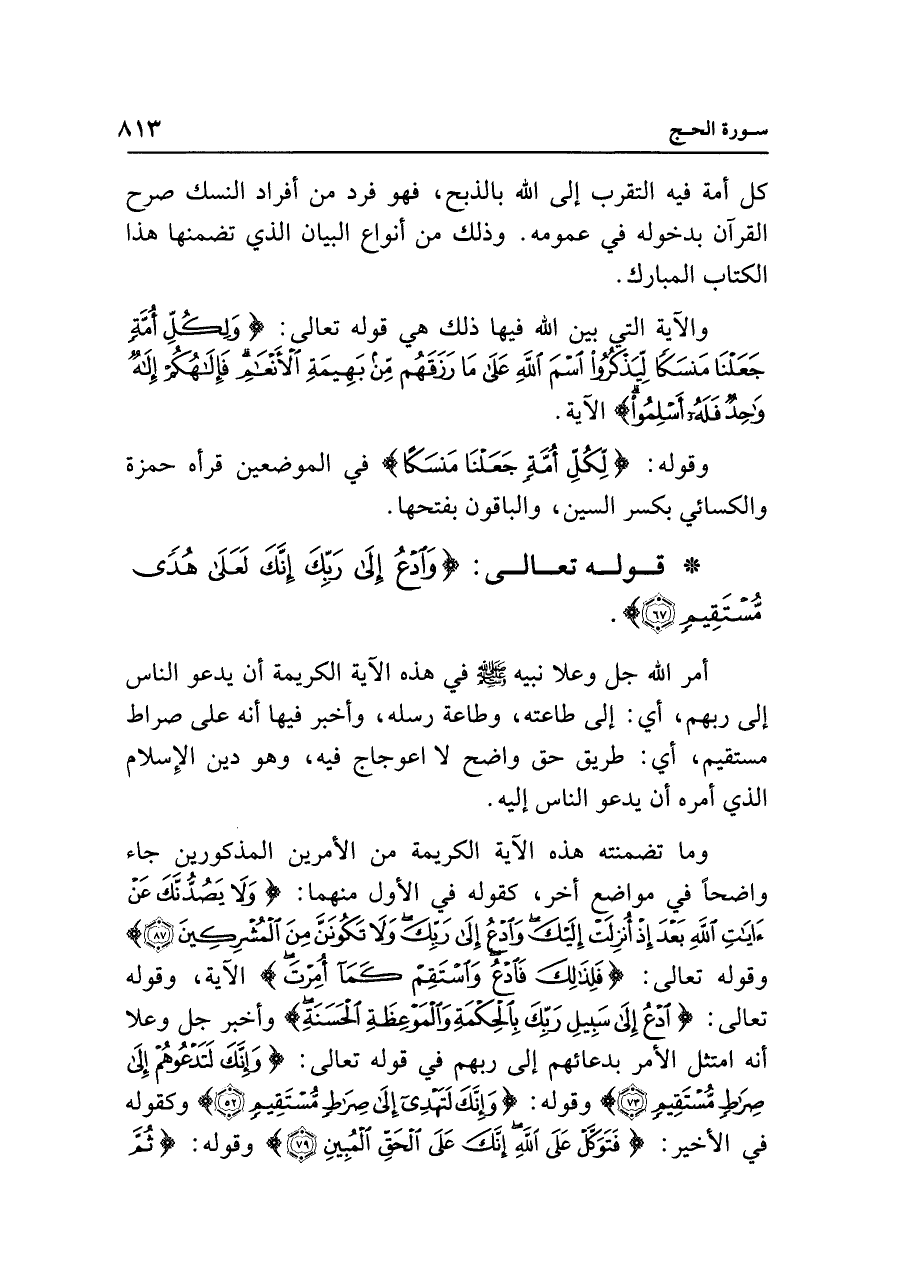 سورة الحج ٨١٣
كل أمة فيه التقرب إلى الله بالذبح، فهو فرد من أفراد النسك صرح
القرآن بدخوله في عمومه. وذلك من أنواع البيان الذي تضمنها هذا
الكتاب المبارك.
والآية التي بين الله فيها ذلك هي قوله تعالى: ﴿ وَلِكُلِّ أُمَّةٍ
جَعَلْنَا مَنسَكًا لِّيَذْكُرُوا۟ ٱسْمَ ٱللَّهِ عَلَىٰ مَا رَزَقَهُم مِّنۢ بَهِيمَةِ ٱلْأَنْعَـٰمِۗ فَإِلَـٰهُكُمْ إِلَـٰهٌ
وَٰحِدٌ فَلَهُۥٓ أَسْلِمُوا۟ۗ﴾ الآية.
وقوله: ﴿ لِّكُلِّ أُمَّةٍ جَعَلْنَا مَنسَكًا﴾ في الموضعين قرأه حمزة
والكسائي بكسر السين، والباقون بفتحها.
* قوله تعالى: ﴿وَٱدْعُ إِلَىٰ رَبِّكَ إِنَّكَ لَعَلَىٰ هُدًى
مُّسْتَقِيمٍ ٦٧﴾.
أمر الله جل وعلا نبيه ﷺ في هذه الآية الكريمة أن يدعو الناس
إلى ربهم، أي: إلى طاعته، وطاعة رسله، وأخبر فيها أنه على صراط
مستقيم، أي: طريق حق واضح لا اعوجاج فيه، وهو دين الإسلام
الذي أمره أن يدعو الناس إليه.
وما تضمنته هذه الآية الكريمة من الأمرين المذكورين جاء
واضحاً في مواضع أخر، كقوله في الأول منهما: ﴿ وَلَا يَصُدُّنَّكَ عَنْ
ءَايَـٰتِ ٱللَّهِ بَعْدَ إِذْ أُنزِلَتْ إِلَيْكَۖ وَٱدْعُ إِلَىٰ رَبِّكَۖ وَلَا تَكُونَنَّ مِنَ ٱلْمُشْرِكِينَ ٨٧﴾
وقوله تعالى: ﴿فَلِذَٰلِكَ فَٱدْعُۖ وَٱسْتَقِمْ كَمَآ أُمِرْتَۖ﴾ الآية، وقوله
تعالى: ﴿ ٱدْعُ إِلَىٰ سَبِيلِ رَبِّكَ بِٱلْحِكْمَةِ وَٱلْمَوْعِظَةِ ٱلْحَسَنَةِۖ﴾ وأخبر جل وعلا
أنه امتثل الأمر بدعائهم إلى ربهم في قوله تعالى: ﴿ وَإِنَّكَ لَتَدْعُوهُمْ إِلَىٰ
صِرَٰطٍ مُّسْتَقِيمٍ ٧٣﴾ وقوله: ﴿وَإِنَّكَ لَتَهْدِىٓ إِلَىٰ صِرَٰطٍ مُّسْتَقِيمٍ ٥٢﴾ وكقوله
في الأخير: ﴿ فَتَوَكَّلْ عَلَى ٱللَّهِۖ إِنَّكَ عَلَى ٱلْحَقِّ ٱلْمُبِينِ ٧٩﴾ وقوله: ﴿ ثُمَّ